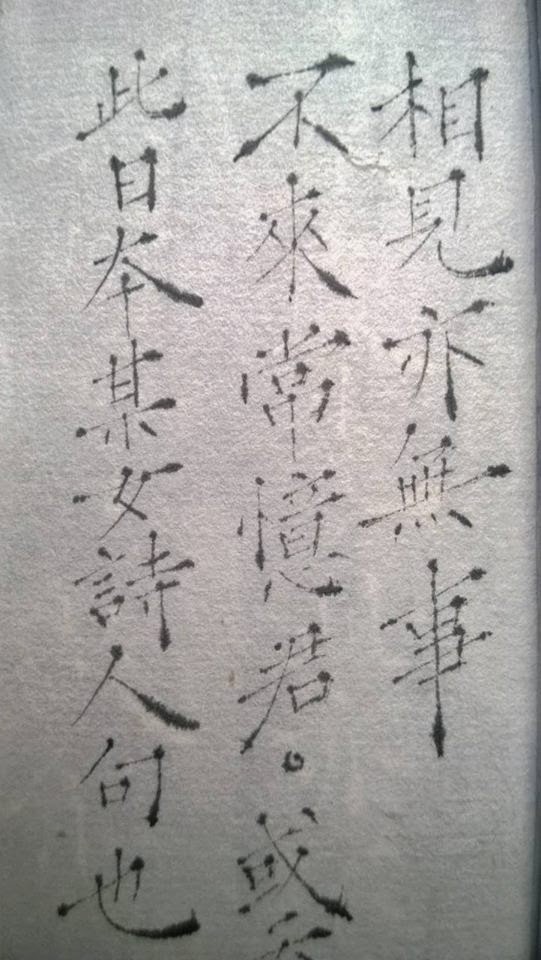 相見亦無事
不來常憶君。或
此日本某女詩人句也